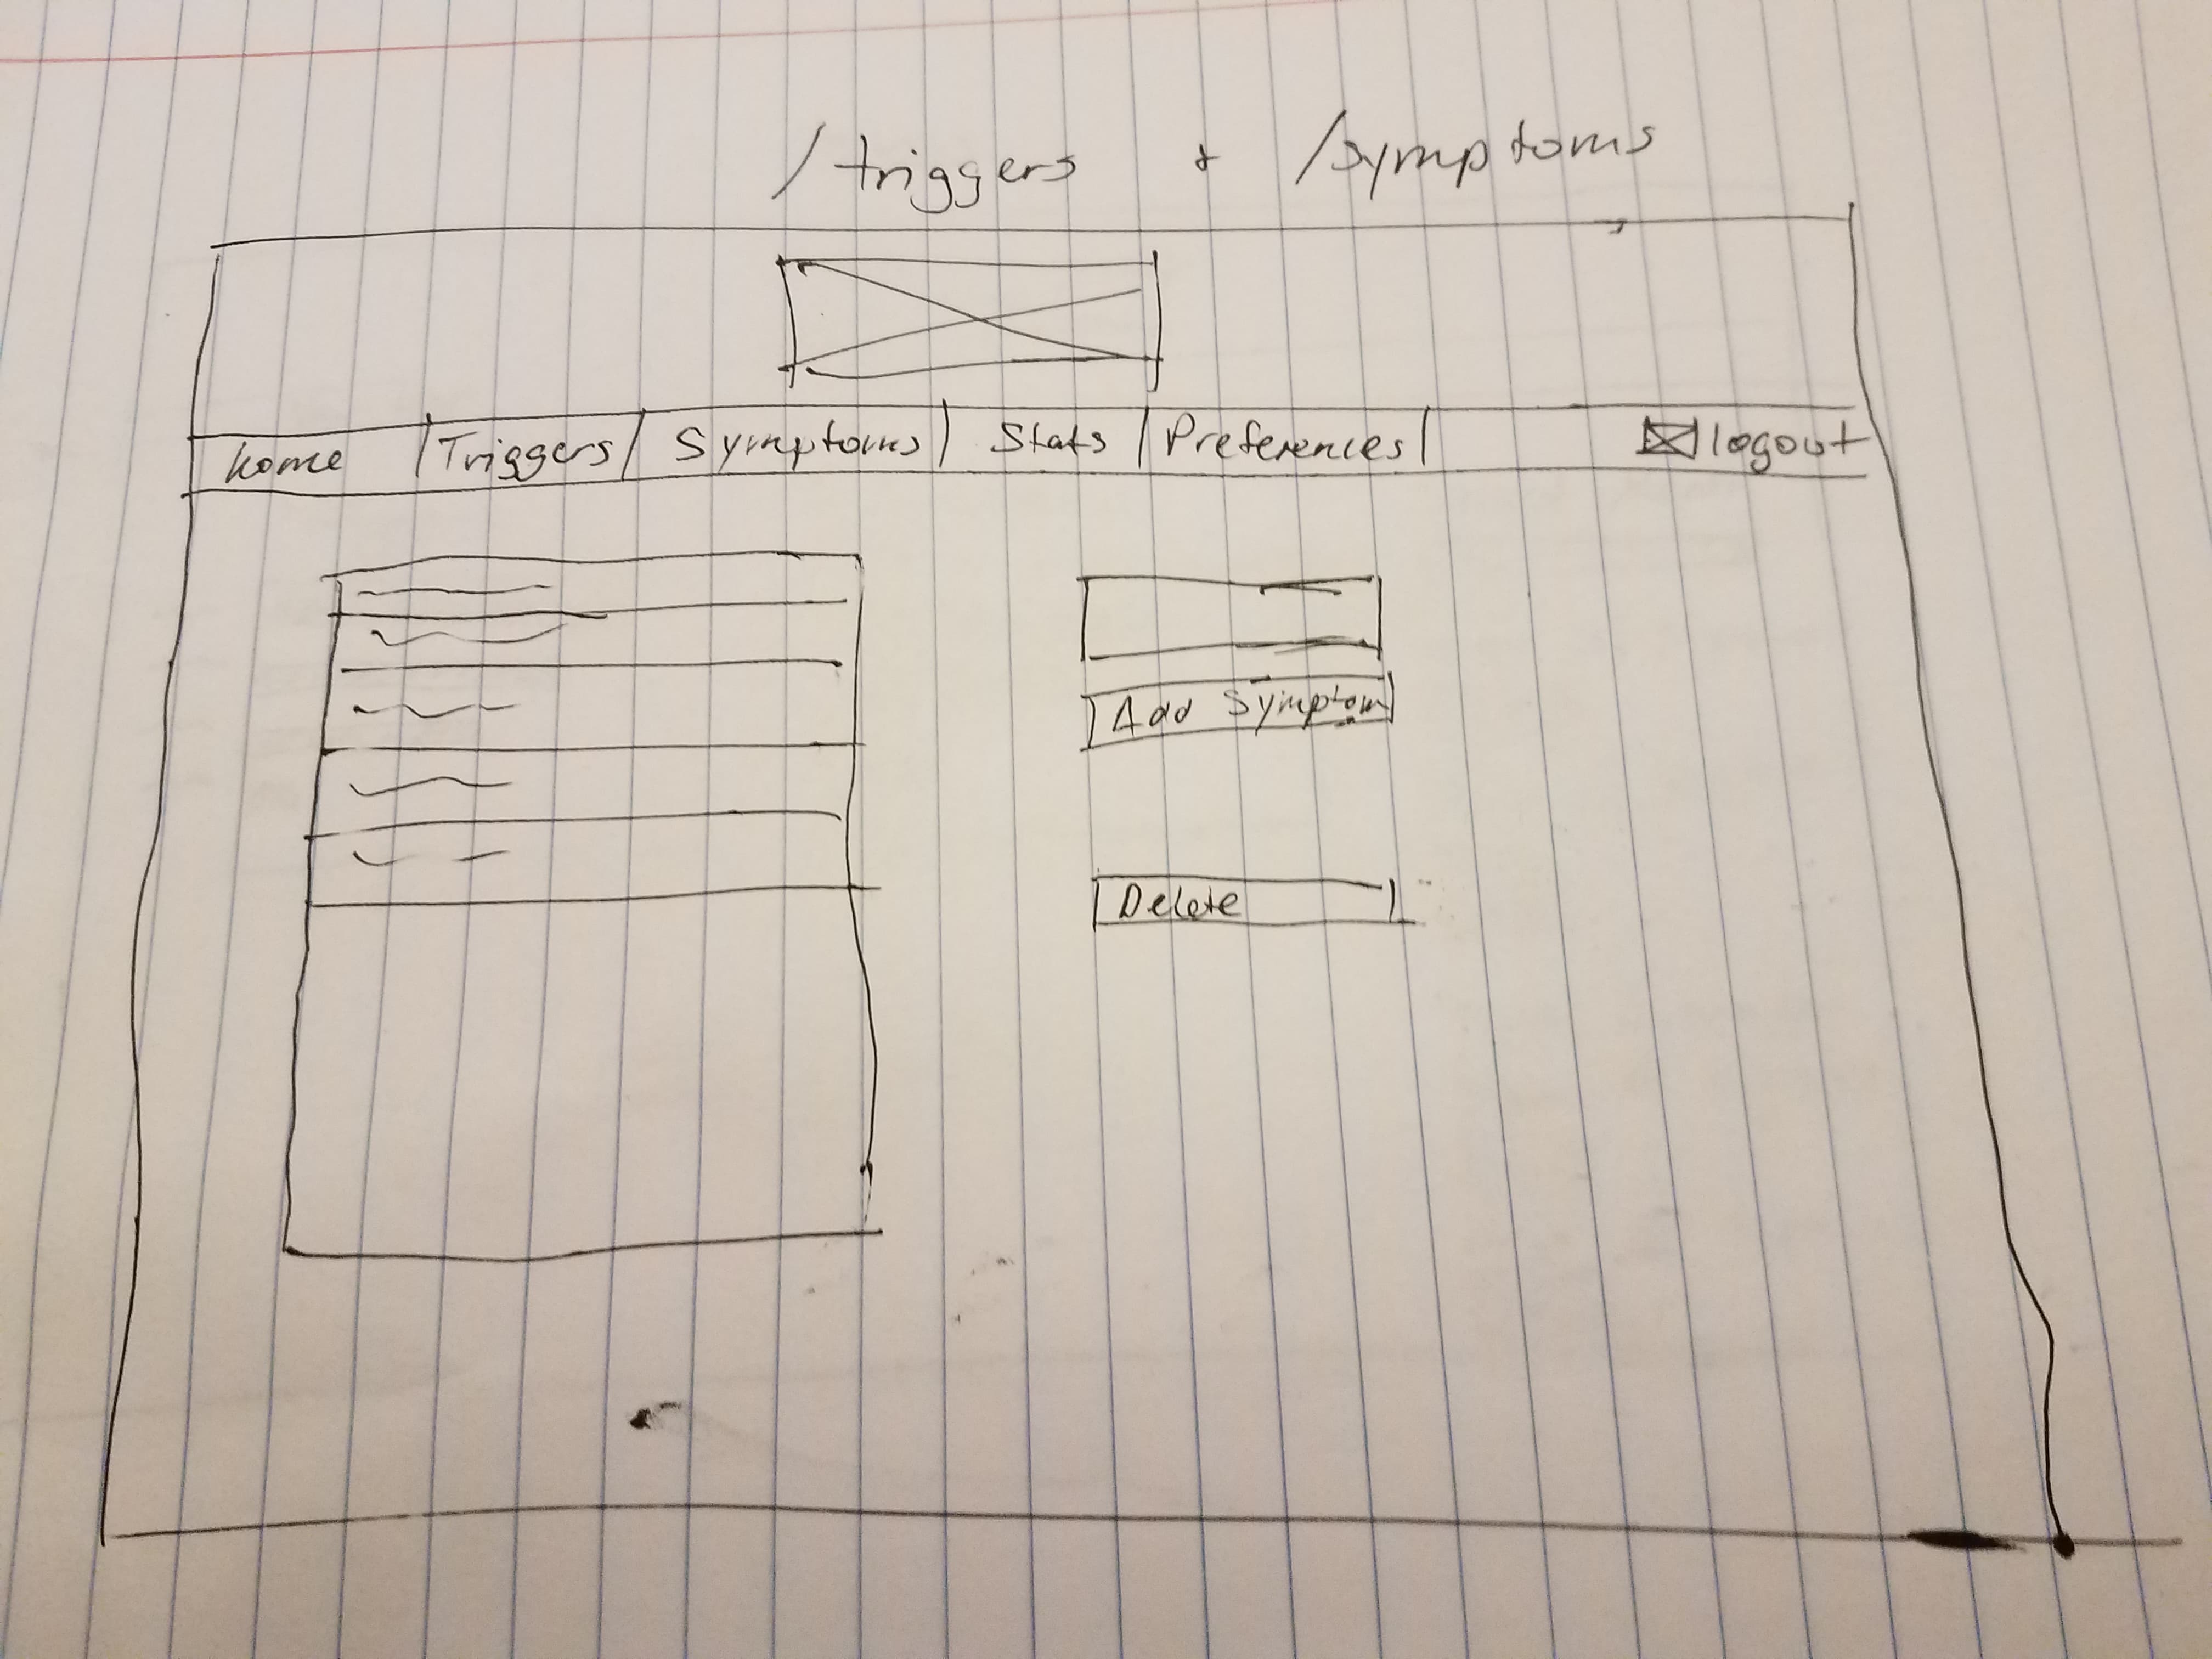 /triggers + /symptoms
home | Triggers | Symptoms | Stats | Preferences | logout
Add Symptom
Delete